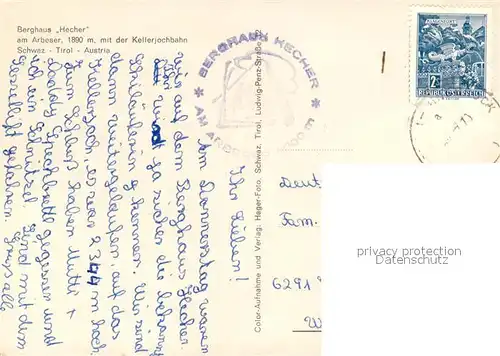 Berghaus „Hecher"
am Arbeser, 1890 m, mit der Kellerjochbahn
Schwaz - Tirol - Austria
★ BERGHAUS HECHER ★
AM ARBESER
KLAGENFURT
2 S
REPUBLIK ÖSTERREICH
Color-Aufnahme und Verlag: Hager-Foto, Schwaz, Tirol, Ludwig-Penz-Straße 22
Ihr Lieben!
Am Donnerstag waren
wir auf dem Berghaus Hecher.
Ihr wird ja sicher die
kennen. Wir sind
dann weitergelaufen, auf das
Kellerjoch, es war 2344 m hoch.
Zum Schluß haben Mutti +
Speckbrettl gegessen und
ich ein Schnitzel. Sind mit dem
Sessellift gefahren. Gruß alle
Deut
Fam.
6291
W
privacy protection
Datenschutz